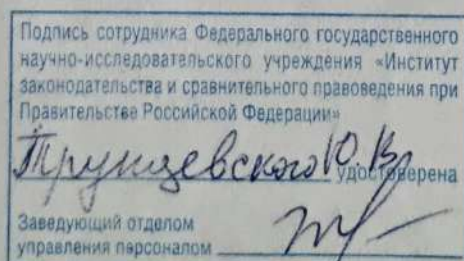 Подпись сотрудника Федерального государственного
научно-исследовательского учреждения «Институт
законодательства и сравнительного правоведения при
Правительстве Российской Федерации»
Трунцевского Ю.В. удостоверена
Заведующий отделом
управления персоналом